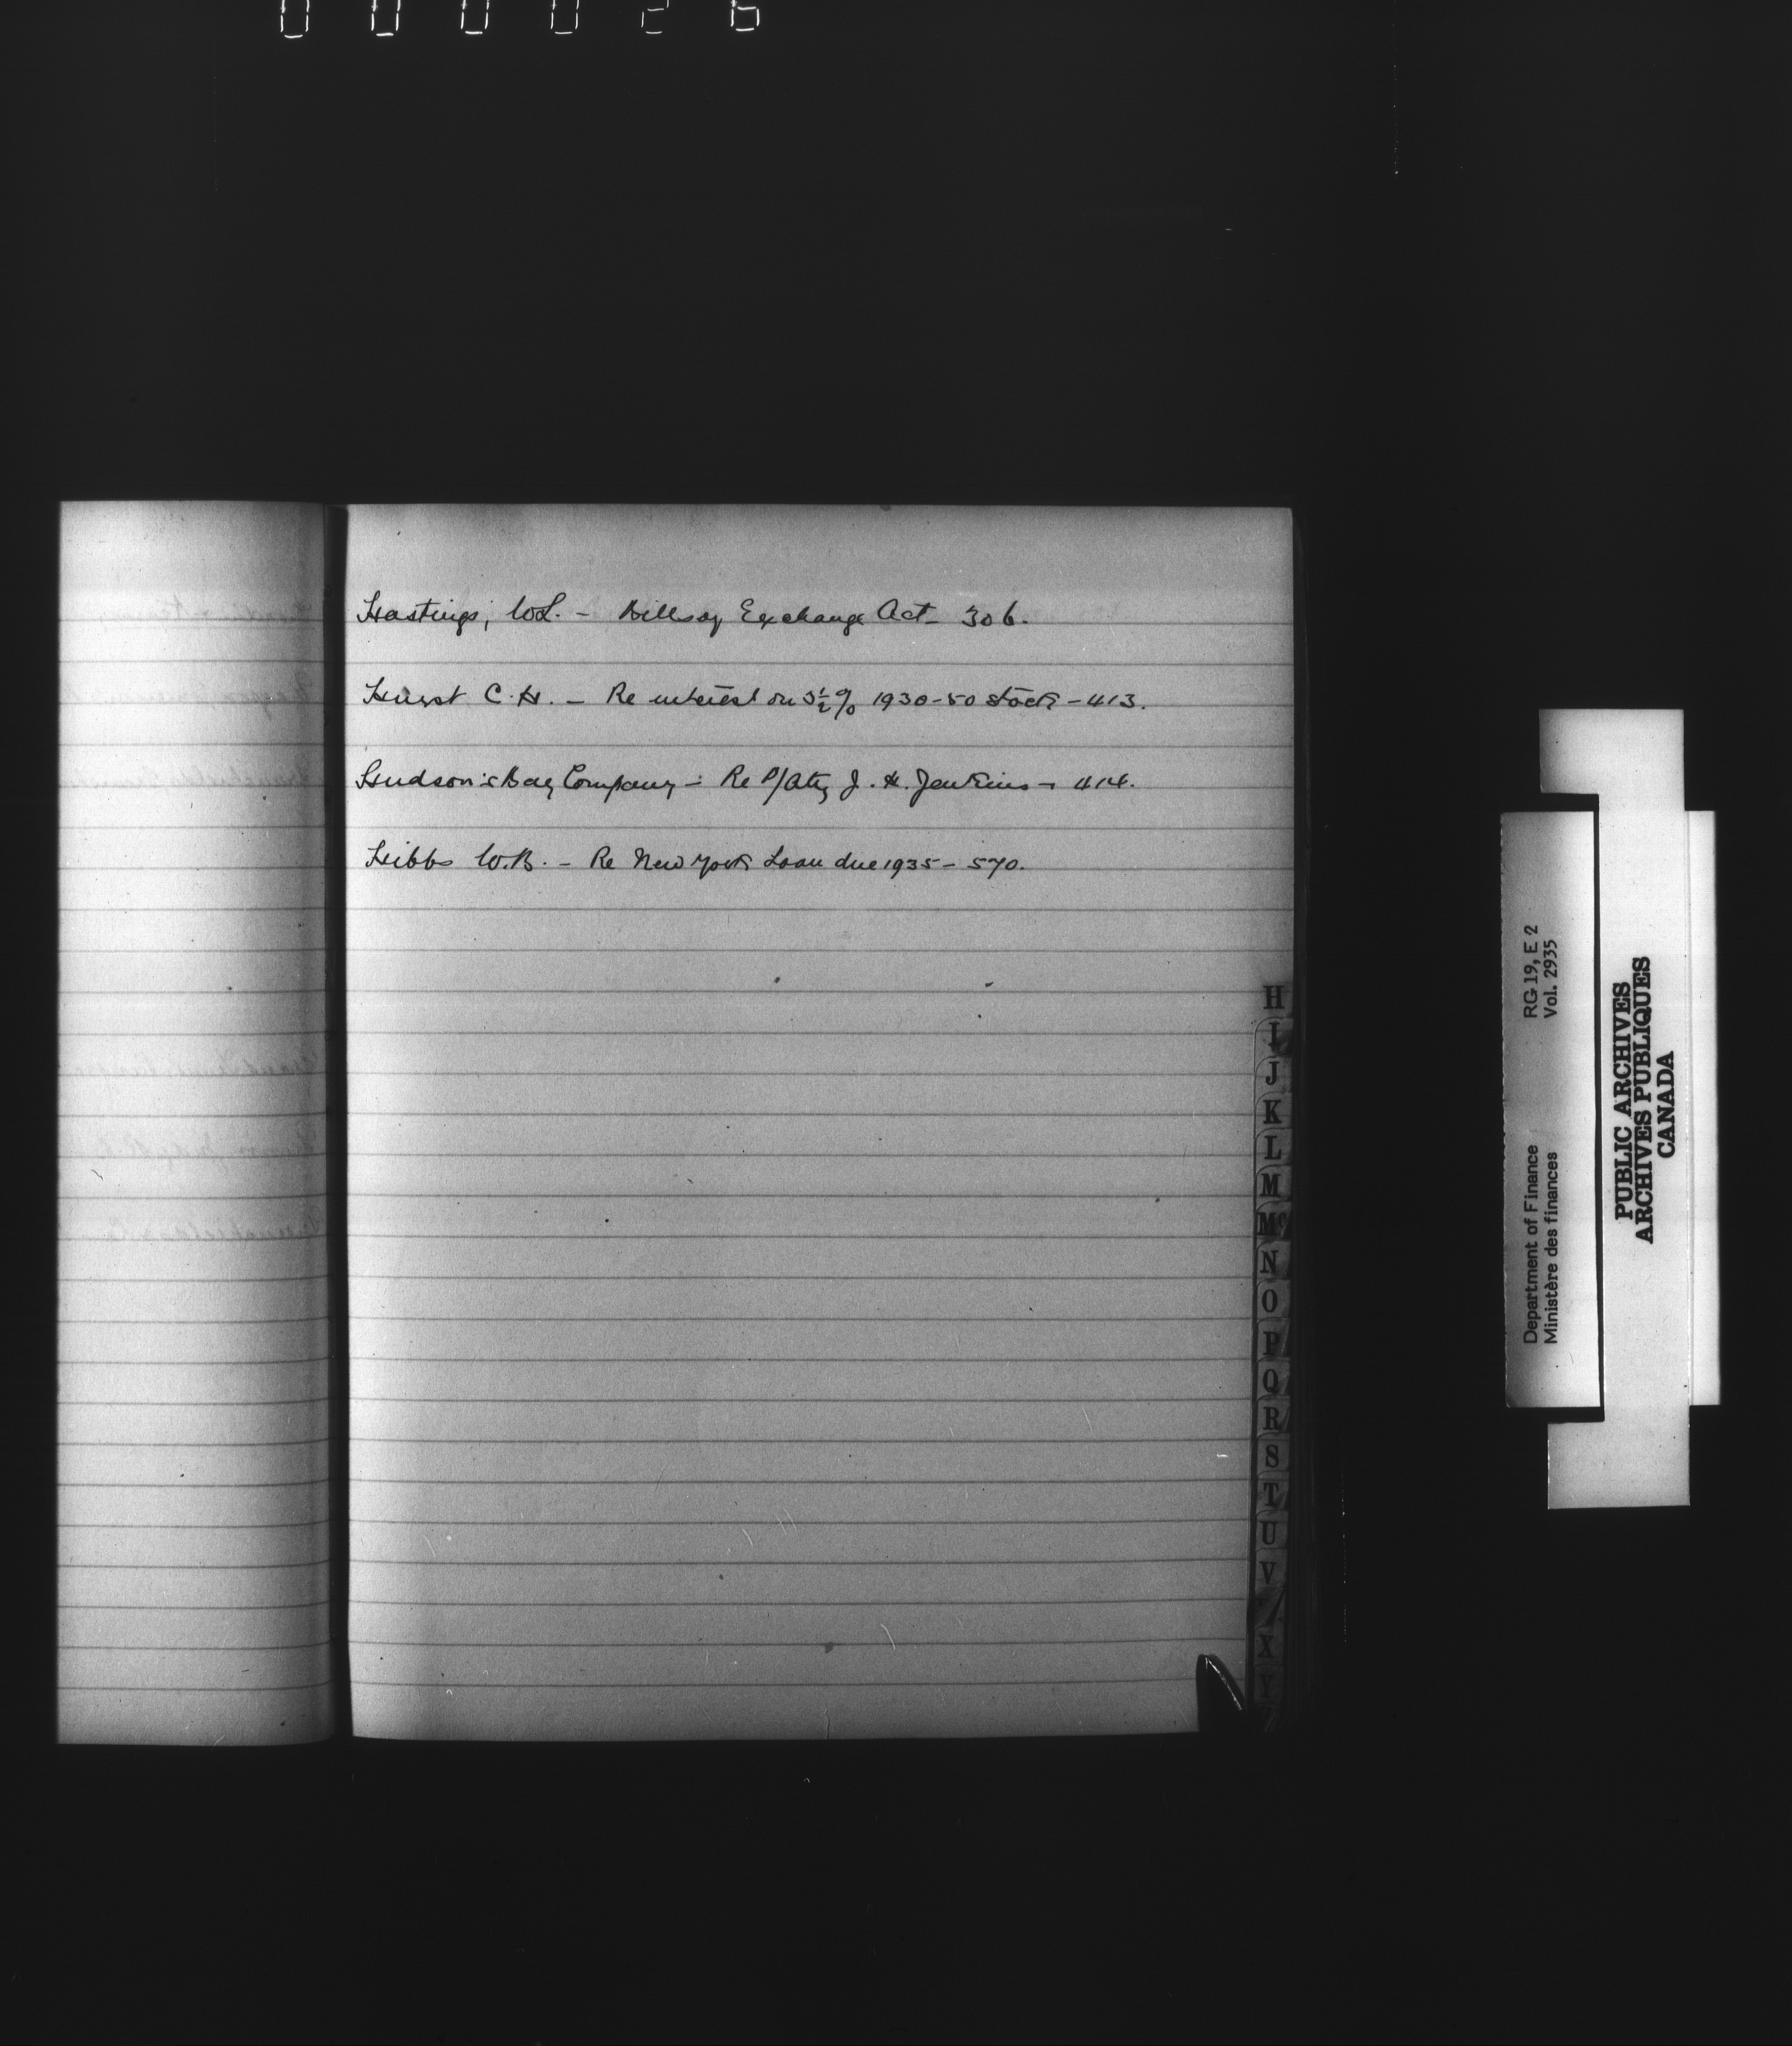 000026
Hastings, W.L. - Bills of Exchange Act - 306.
Hurst C.H. - Re interest on 3½% 1930-50 stock - 413.
Hudson's Bay Company - Re P/Atty J. H. Jenkins - 414.
Hibbs W.B. - Re New York Loan due 1935 - 570.
H
I
J
K
L
M
Mc
N
O
P
Q
R
S
T
U
V
X
Y
Department of Finance RG 19, E 2
Ministère des finances Vol. 2935
PUBLIC ARCHIVES
ARCHIVES PUBLIQUES
CANADA